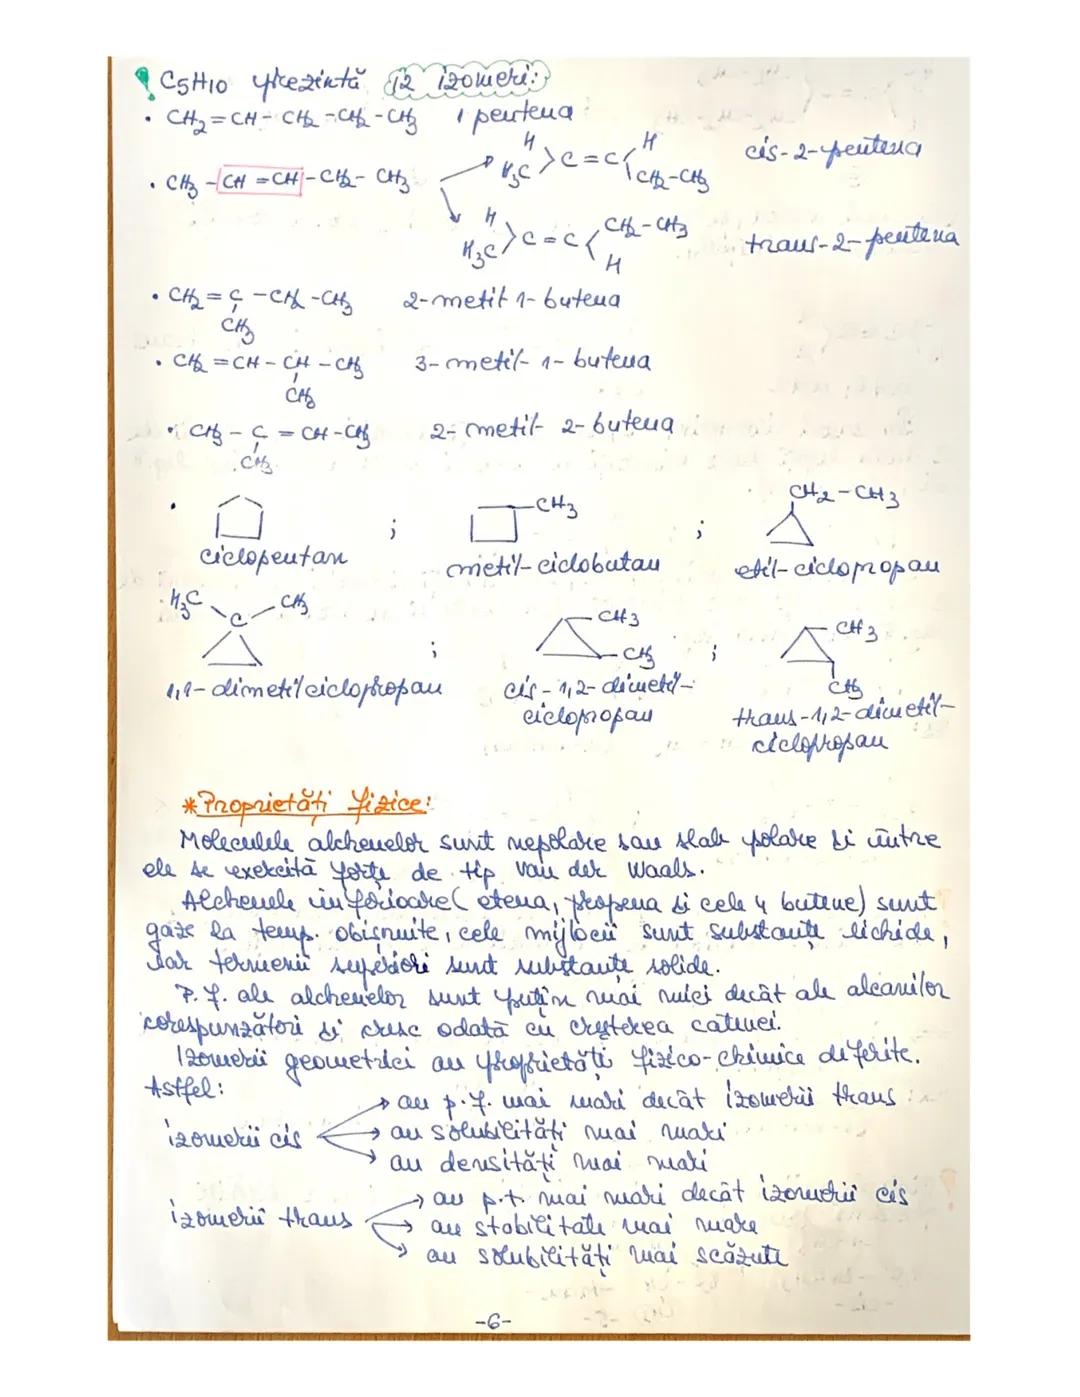 C5H10 prezintă 12 izomeri:
• CH2=CH-CH2-CH2-CH3 1 pentena
• CH3-CH=CH-CH2-CH3
H H3C >C=C< H CH2-CH3 cis-2-pentena
H H3C >C=C< CH2-CH3 H trans-2-pentena
• CH2=C-CH2-CH3 2-metil 1-butena
CH3
• CH2=CH-CH-CH3 3-metil-1-butena
CH3
• CH3-C=CH-CH3 2-metil-2-butena
CH3
• ; -CH3 ; CH2-CH3
ciclopentan metil-ciclobutan etil-ciclopropan
H3C C CH3 ; CH3 CH3 ; CH3 CH3
1,1-dimetilciclopropan cis-1,2-dimetil- trans-1,2-dimetil-
ciclopropan ciclopropan
*Proprietăți fizice:
Moleculele alchenelor sunt nepolare sau slab polare și între
ele se exercită forțe de tip Van der Waals.
Alchenele inferioare (etena, propena și cele 4 butene) sunt
gaze la temp. obișnuite, cele mijlocii sunt substanțe lichide,
iar termenii superiori sunt substanțe solide.
P.f. ale alchenelor sunt puțin mai mici decât ale alcanilor
corespunzători și cresc odată cu creșterea catenei.
Izomerii geometrici au proprietăți fizico-chimice diferite.
Astfel:
izomerii cis → au p.f. mai mari decât izomerii trans
→ au solubilități mai mari
→ au densități mai mari
izomerii trans → au p.t. mai mari decât izomerii cis
→ au stabilitate mai mare
→ au solubilități mai scăzute
-6-